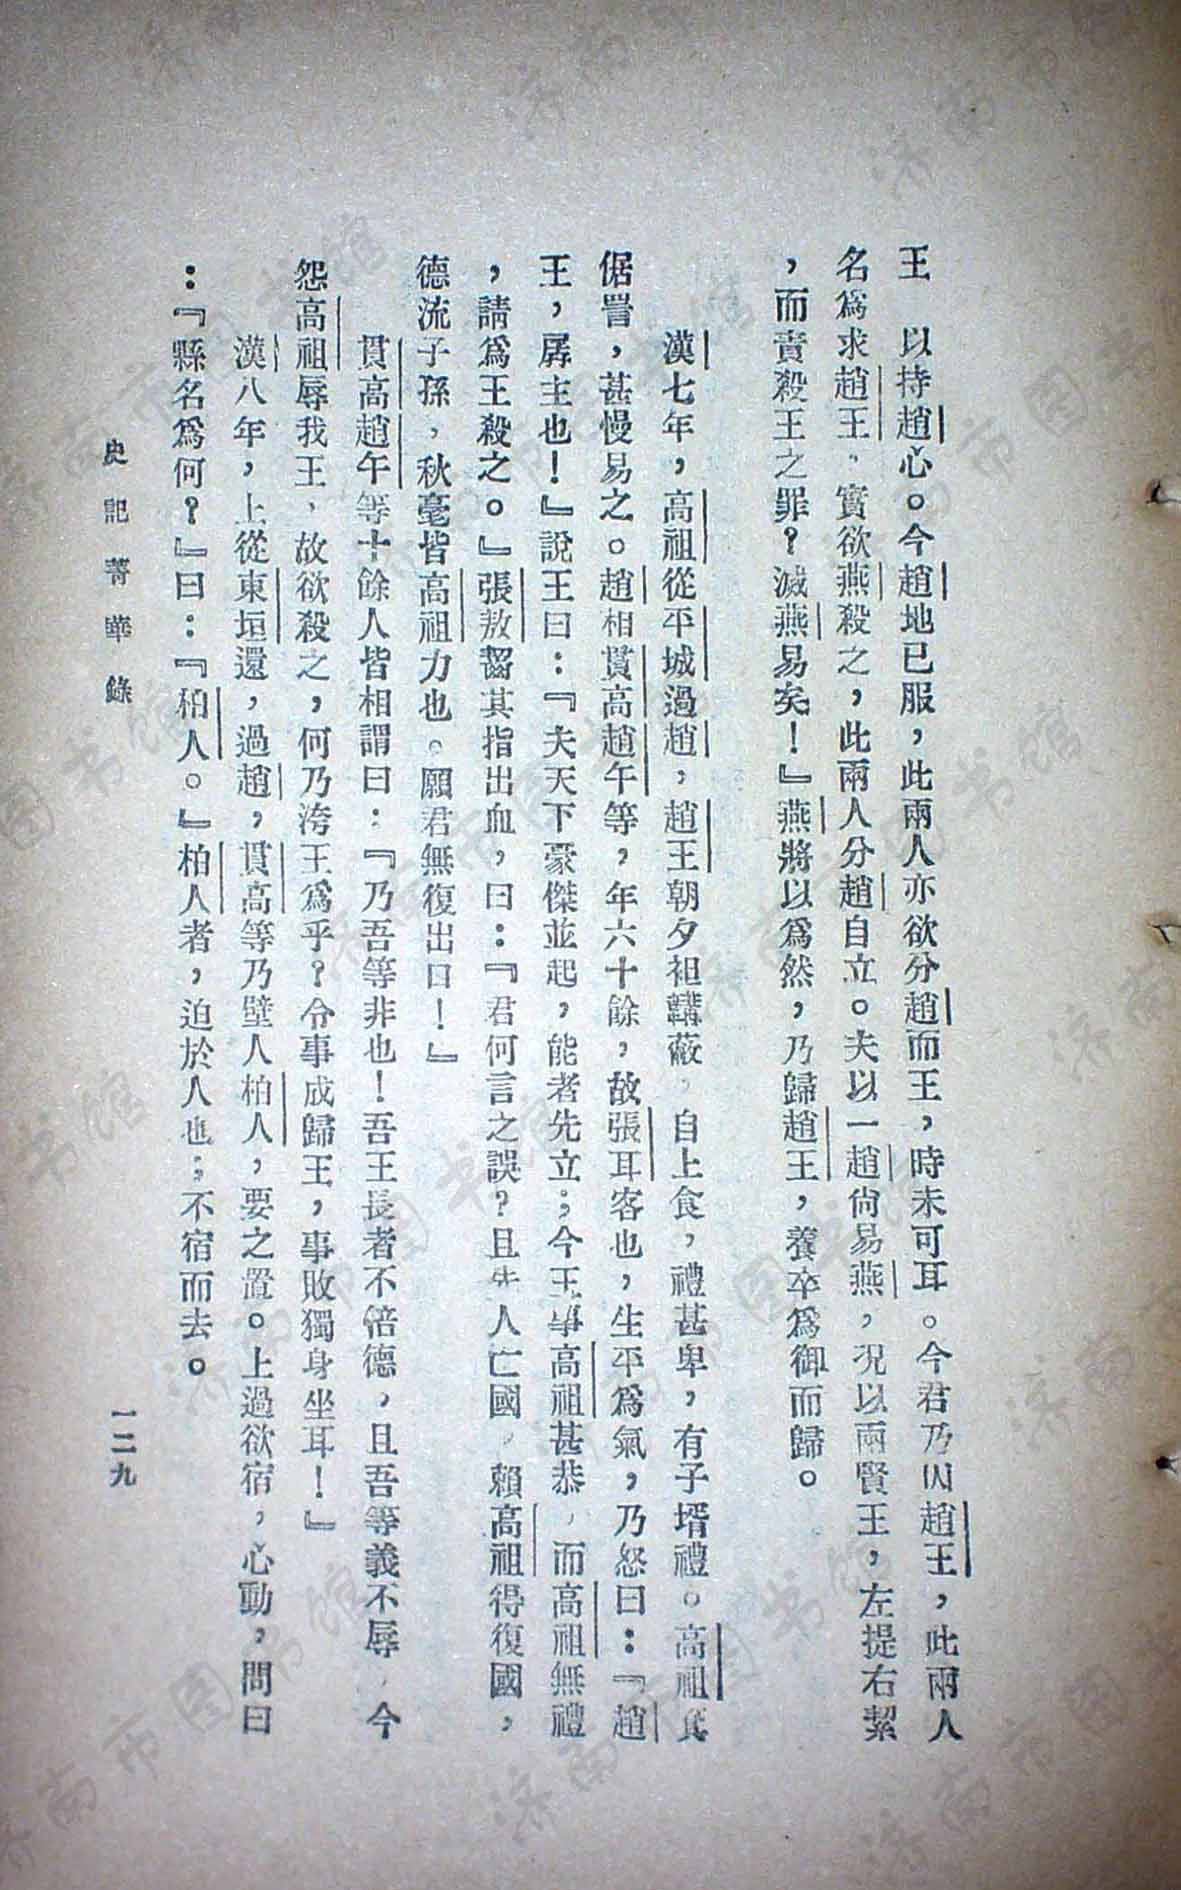 王　以持趙心。今趙地已服，此兩人亦欲分趙而王，時未可耳。今君乃囚趙王，此兩人
名爲求趙王，實欲燕殺之，此兩人分趙自立。夫以一趙尙易燕，况以兩賢王，左提右絜
，而責殺王之罪？滅燕易矣！』燕將以爲然，乃歸趙王，養卒爲御而歸。
漢七年，高祖從平城過趙，趙王朝夕袒韝蔽，自上食，禮甚卑，有子壻禮。高祖箕
倨詈，甚慢易之。趙相貫高趙午等，年六十餘，故張耳客也，生平爲氣，乃怒曰：『趙
王，孱主也！』說王曰：『夫天下豪傑並起，能者先立；今王事高祖甚恭，而高祖無禮
，請爲王殺之。』張敖齧其指出血，曰：『君何言之誤？且先人亡國，賴高祖得復國，
德流子孫，秋毫皆高祖力也。願君無復出口！』
貫高趙午等十餘人皆相謂曰：『乃吾等非也！吾王長者不倍德，且吾等義不辱，今
怨高祖辱我王，故欲殺之，何乃洿王爲乎？令事成歸王，事敗獨身坐耳！』
漢八年，上從東垣還，過趙，貫高等乃壁人柏人，要之置。上過欲宿，心動，問曰
：『縣名爲何？』曰：『柏人。』柏人者，迫於人也；不宿而去。
史記菁華錄
一二九
济南市图书馆